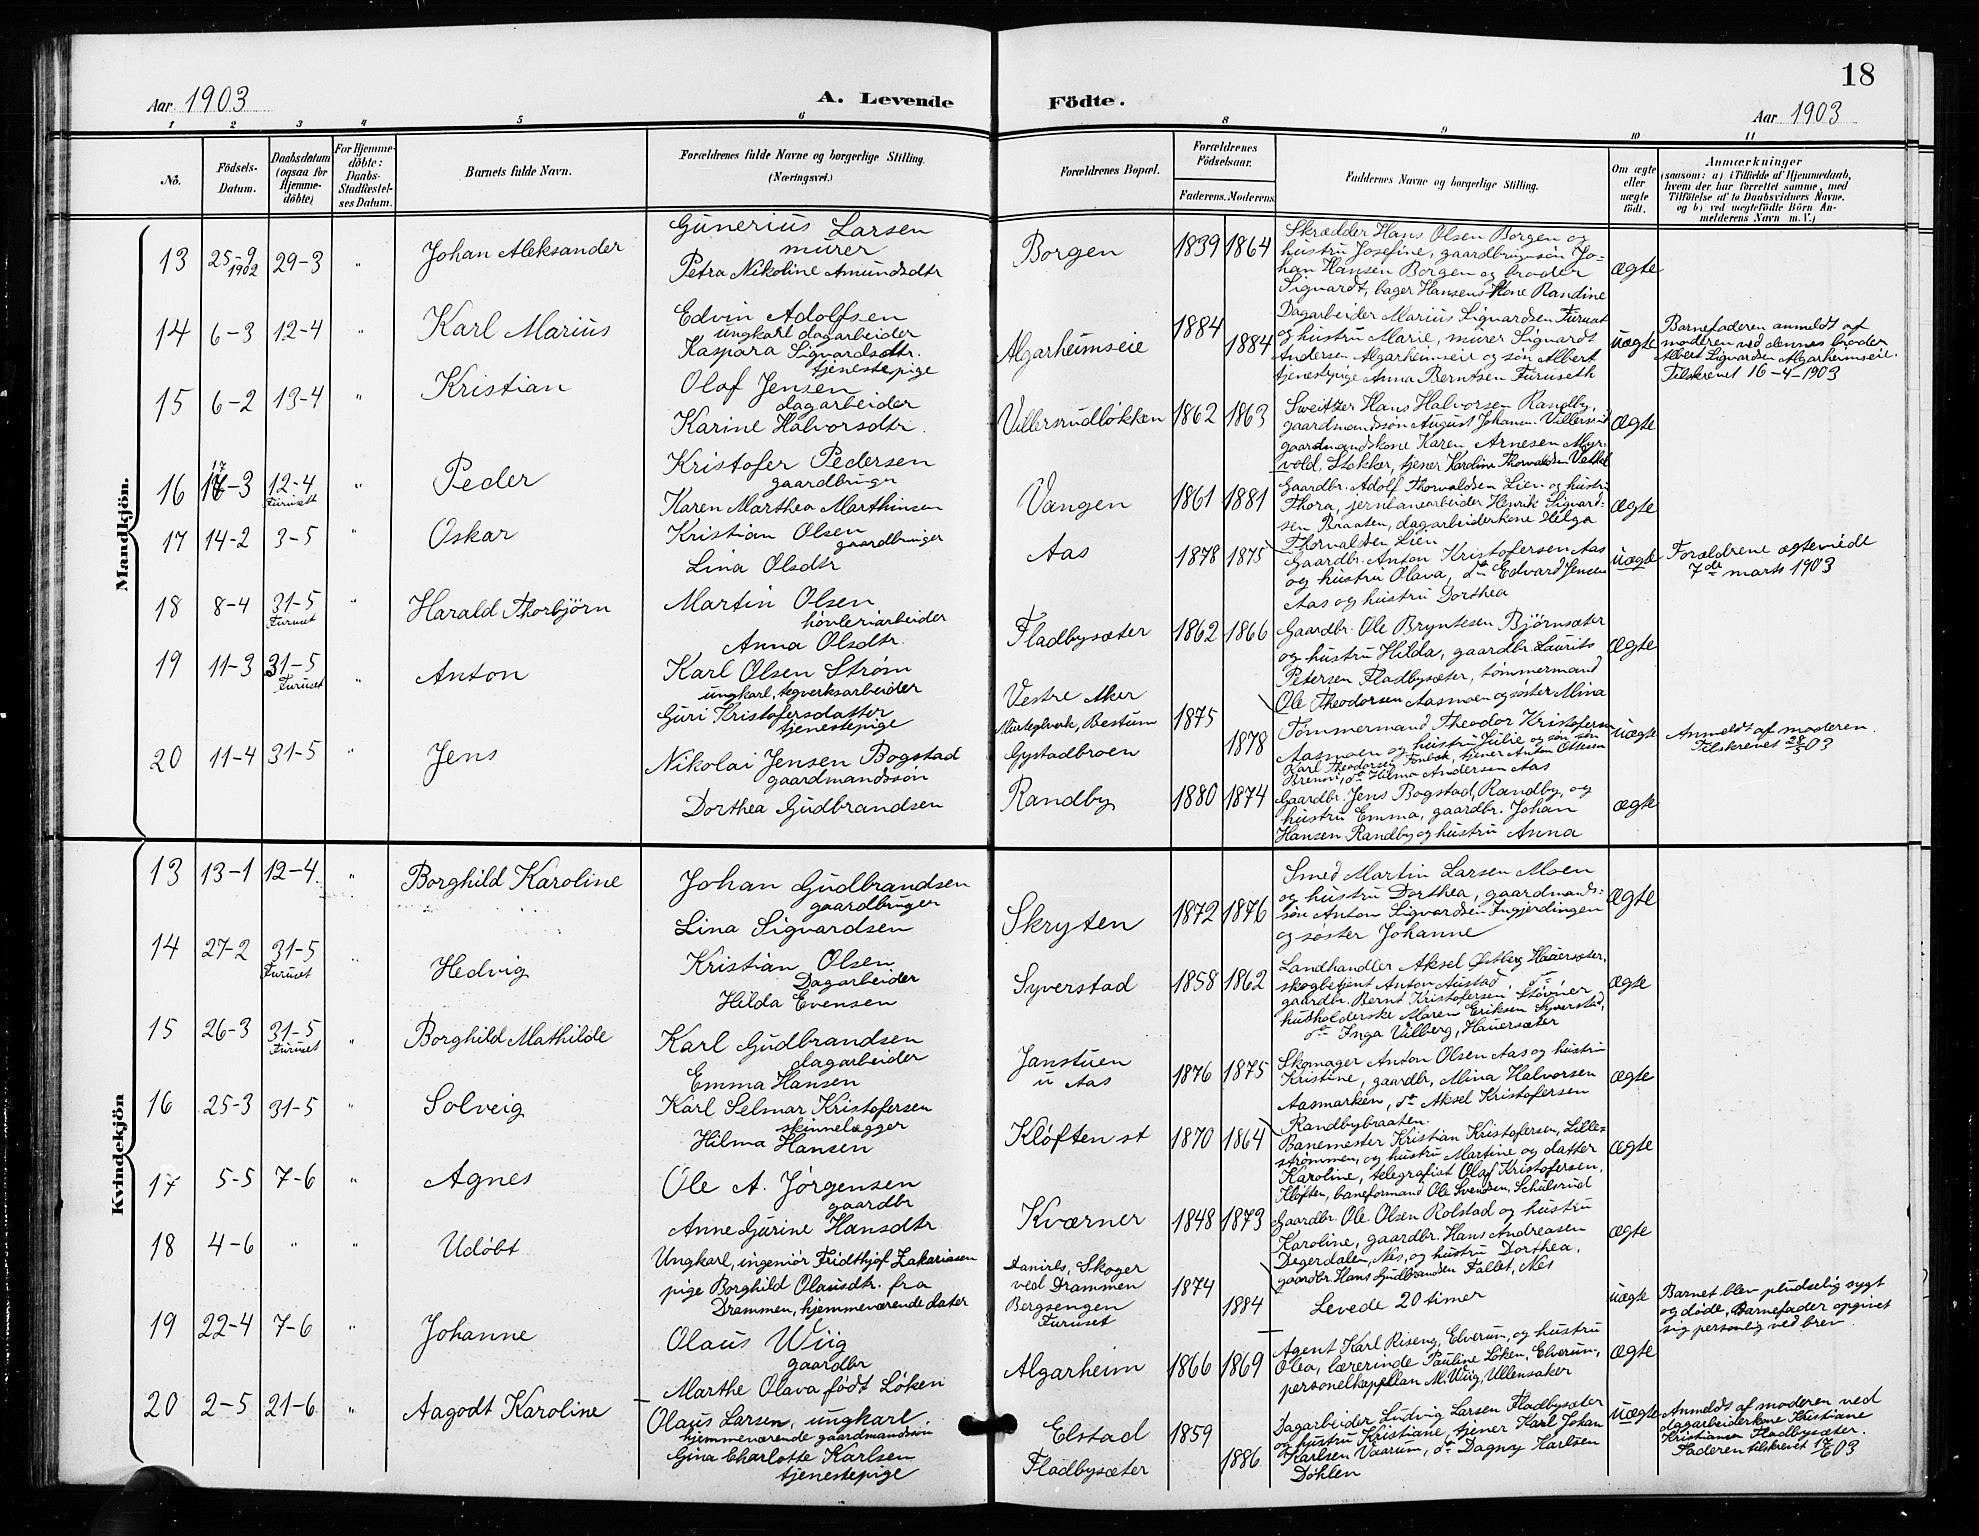 18
Aar 1903
A. Levende
Födte.
Aar 1903
1 2 3 4 5 6 8 9 10 11
No.
Födsels-
Datum.
Daabsdatum
(ogsaa for
Hjemme-
döbte)
For Hjemme-
döbte:
Daabs-
Stadfæstel-
ses Datum.
Barnets fulde Navn.
Forældrenes fulde Navne og borgerlige Stilling.
(Næringsvei.)
Forældrenes Bopæl.
Forældrenes
Födselsaar.
Faderens. Moderens.
Faddernes Navne og borgerlige Stilling.
Om ægte
eller
uægte
födt.
Anmærkninger
(saasom: a) i Tilfælde af Hjemmedaab,
hvem der har forrettet samme, med
Tilföielse af to Daabsvidners Navne.
og b) ved uægtefödte Börn An-
melderens Navn m. V.)
Mandkjön.
13 25-9 1902 29-3 " Johan Aleksander
Gunerius Larsen
murer
Petra Nikoline Amundsdtr
Borgen 1839 1864
Skrædder Hans Olsen Borgen og
hustru Josefine, gaardbrugersøn Jo-
han Hansen Borgen og broder
Sigvardt, bager Hansens Kone Randine
ægte
14 6-3 12-4 " Karl Marius
Edvin Adolfsen
ungkarl dagarbeider
Kaspara Sigvardsdtr.
tjenestepige
Algarheimseie 1884 1884
Dagarbeider Marius Sigvardsen Furuset
og hustru Marie, murer Sigvardt
Andersen Algarheimseie og søn Albert
tjenestepige Anna Berntsen Furuseth
uægte
Barnefaderen anmeldt af
moderen ved dennes broder
Albert Sigvardsen Algarheimseie.
Tilskrevet 16-4-1903
15 6-2 13-4 " Kristian
Olaf Jensen
dagarbeider
Karine Halvorsdtr.
Villersrudløkken 1862 1863
Sweitzer Hans Halvorsen Randby,
gaardmandssøn August Johansen Villersrud
gaardmandskone Karen Arnesen Myr-
vold, Stokker, tjener Karoline Thorvaldsen
ægte
16 17-3 12-4 Furuset " Peder
Kristofer Pedersen
gaardbruger
Karen Marthea Marthinsen
Vangen 1861 1881
Gaardbr. Adolf Thorvaldsen Lien og hustru
Thora, jernbanearbeider Henrik Sigvard-
sen Braaten, dagarbeiderkone Helga
Thorvaldsen Lien
ægte
17 14-2 3-5 " Oskar
Kristian Olsen
gaardbruger
Lina Olsdtr
Aas 1878 1875
Gaardbr. Anton Kristofersen Aas
og hustru Olava, do Edvard Jensen
Aas og hustru Dorthea
uægte
Forældrene ægteviede
7de marts 1903
18 8-4 31-5 Furuset " Harald Thorbjørn
Martin Olsen
høvleriarbeider
Anna Olsdtr.
Fladbysæter 1862 1866
Gaardbr. Ole Bryntesen Bjørnsæter
og hustru Hilda, gaardbr. Laurits
Petersen Fladbysæter, tømmermand
Ole Theodorsen Aasmoen og søster Mina
ægte
19 11-3 31-5 Furuset " Anton
Karl Olsen Strøm
ungkarl, tegverksarbeider
Guri Kristofersdatter
tjenestepige
Vestre Aker
Bestum
Gystadbroen
1875 1878
Tømmermand Theodor Kristofersen
Aasmoen og hustru Julie og søn
Karl Theodorsen tjener Anton Ottesen
do Hilma Andersen Aas
uægte
Anmeldt af moderen.
Tilskrevet 28/5 03
20 11-4 31-5 " Jens
Nikolai Jensen Bogstad
gaardmandssøn
Dorthea Gudbrandsen
Randby 1880 1874
Gaardbr. Jens Bogstad, Randby, og
hustru Emma, gaardbr. Johan
Hansen Randby og hustru Anna
ægte
Kvindekjön
13 13-1 12-4 " Borghild Karoline
Johan Gudbrandsen
gaardbruger
Lina Sigvardsen
Skryten 1872 1876
Smed Martin Larsen Moen
og hustru Dorthea, gaardmands-
søn Anton Sigvardsen Ingjerdingen
og søster Johanne
ægte
14 27-2 31-5 Furuset " Hedvig
Kristian Olsen
Dagarbeider
Hilda Evensen
Syverstad 1858 1862
Landhandler Aksel Østberg Hauersæter,
skogbetjent Anton Austad do
gaardbr. Bernt Kristofersen Støvner
husholderske Maren Eriksen Syverstad,
do Inga Vilberg, Hauersæter
ægte
15 26-3 31-5 Furuset " Borghild Mathilde
Karl Gudbrandsen
dagarbeider
Emma Hansen
Janstuen
u Aas
1876 1875
Skomager Anton Olsen Aas og hustru
Kristine, gaardbr. Mina Halvorsen
Aasmarken, do Aksel Kristofersen
Randbybraaten.
ægte
16 25-3 31-5 " Solveig
Karl Selmar Kristofersen
skinnelægger
Hilma Hansen
Kløften st 1870 1864
Banemester Kristian Kristofersen, Lille-
strømmen, og hustru Martine og datter
Karoline, telegrafist Olaf Kristofersen,
Kløften, baneformand Ole Svendsen, Schulsrud
ægte
17 5-5 7-6 " Agnes
Ole A. Jørgensen
gaardbr
Anne Gurine Hansdtr
Kværner 1848 1873
Gaardbr. Ole Olsen Rolstad og hustru
Karoline, gaardbr. Hans Andreasen
Degerdalen, Nes, og hustru Dorthea,
gaardbr. Hans Gudbrandsen Fallet, Nes
ægte
18 4-6 " " Udøbt
Ungkarl, ingeniør Fridthjof Zakariasen
pige Borghild Olausdtr. fra
Drammen, hjemmeværende dater
Skoger
ved Drammen
Bergsengen
Furuset
1874 1884
Levede 20 timer
uægte
Barnet blev pludselig sygt
og døde, Barnefader opgivet
sig personlig ved brev.
19 22-4 7-6 " Johanne
Olaus Wiig
gaardbr
Marthe Olava født Løken
Algarheim 1866 1869
Agent Karl Riseng, Elverum, og hustru
Olea, lærerinde Pauline Løken, Elverum,
personelkapellan M. Wiig, Ullensaker
ægte
20 2-5 21-6 " Aagodt Karoline
Olaus Larsen, ungkarl.
hjemmeværende gaardmandssøn
Gina Charlotte Karlsen
tjenestepige
Elstad
Fladbysæter
1859 1886
Dagarbeider Ludvig Larsen Fladbysæter
og hustru Kristiane, tjener Karl Johan
Karlsen Vaarum, do Dagny Karlsen
Døhlen
uægte
Anmeldt af moderen ved
dagarbeiderkone Kristiane
Kristiansen Fladbysæter.
Faderen tilskrevet 17/6 03